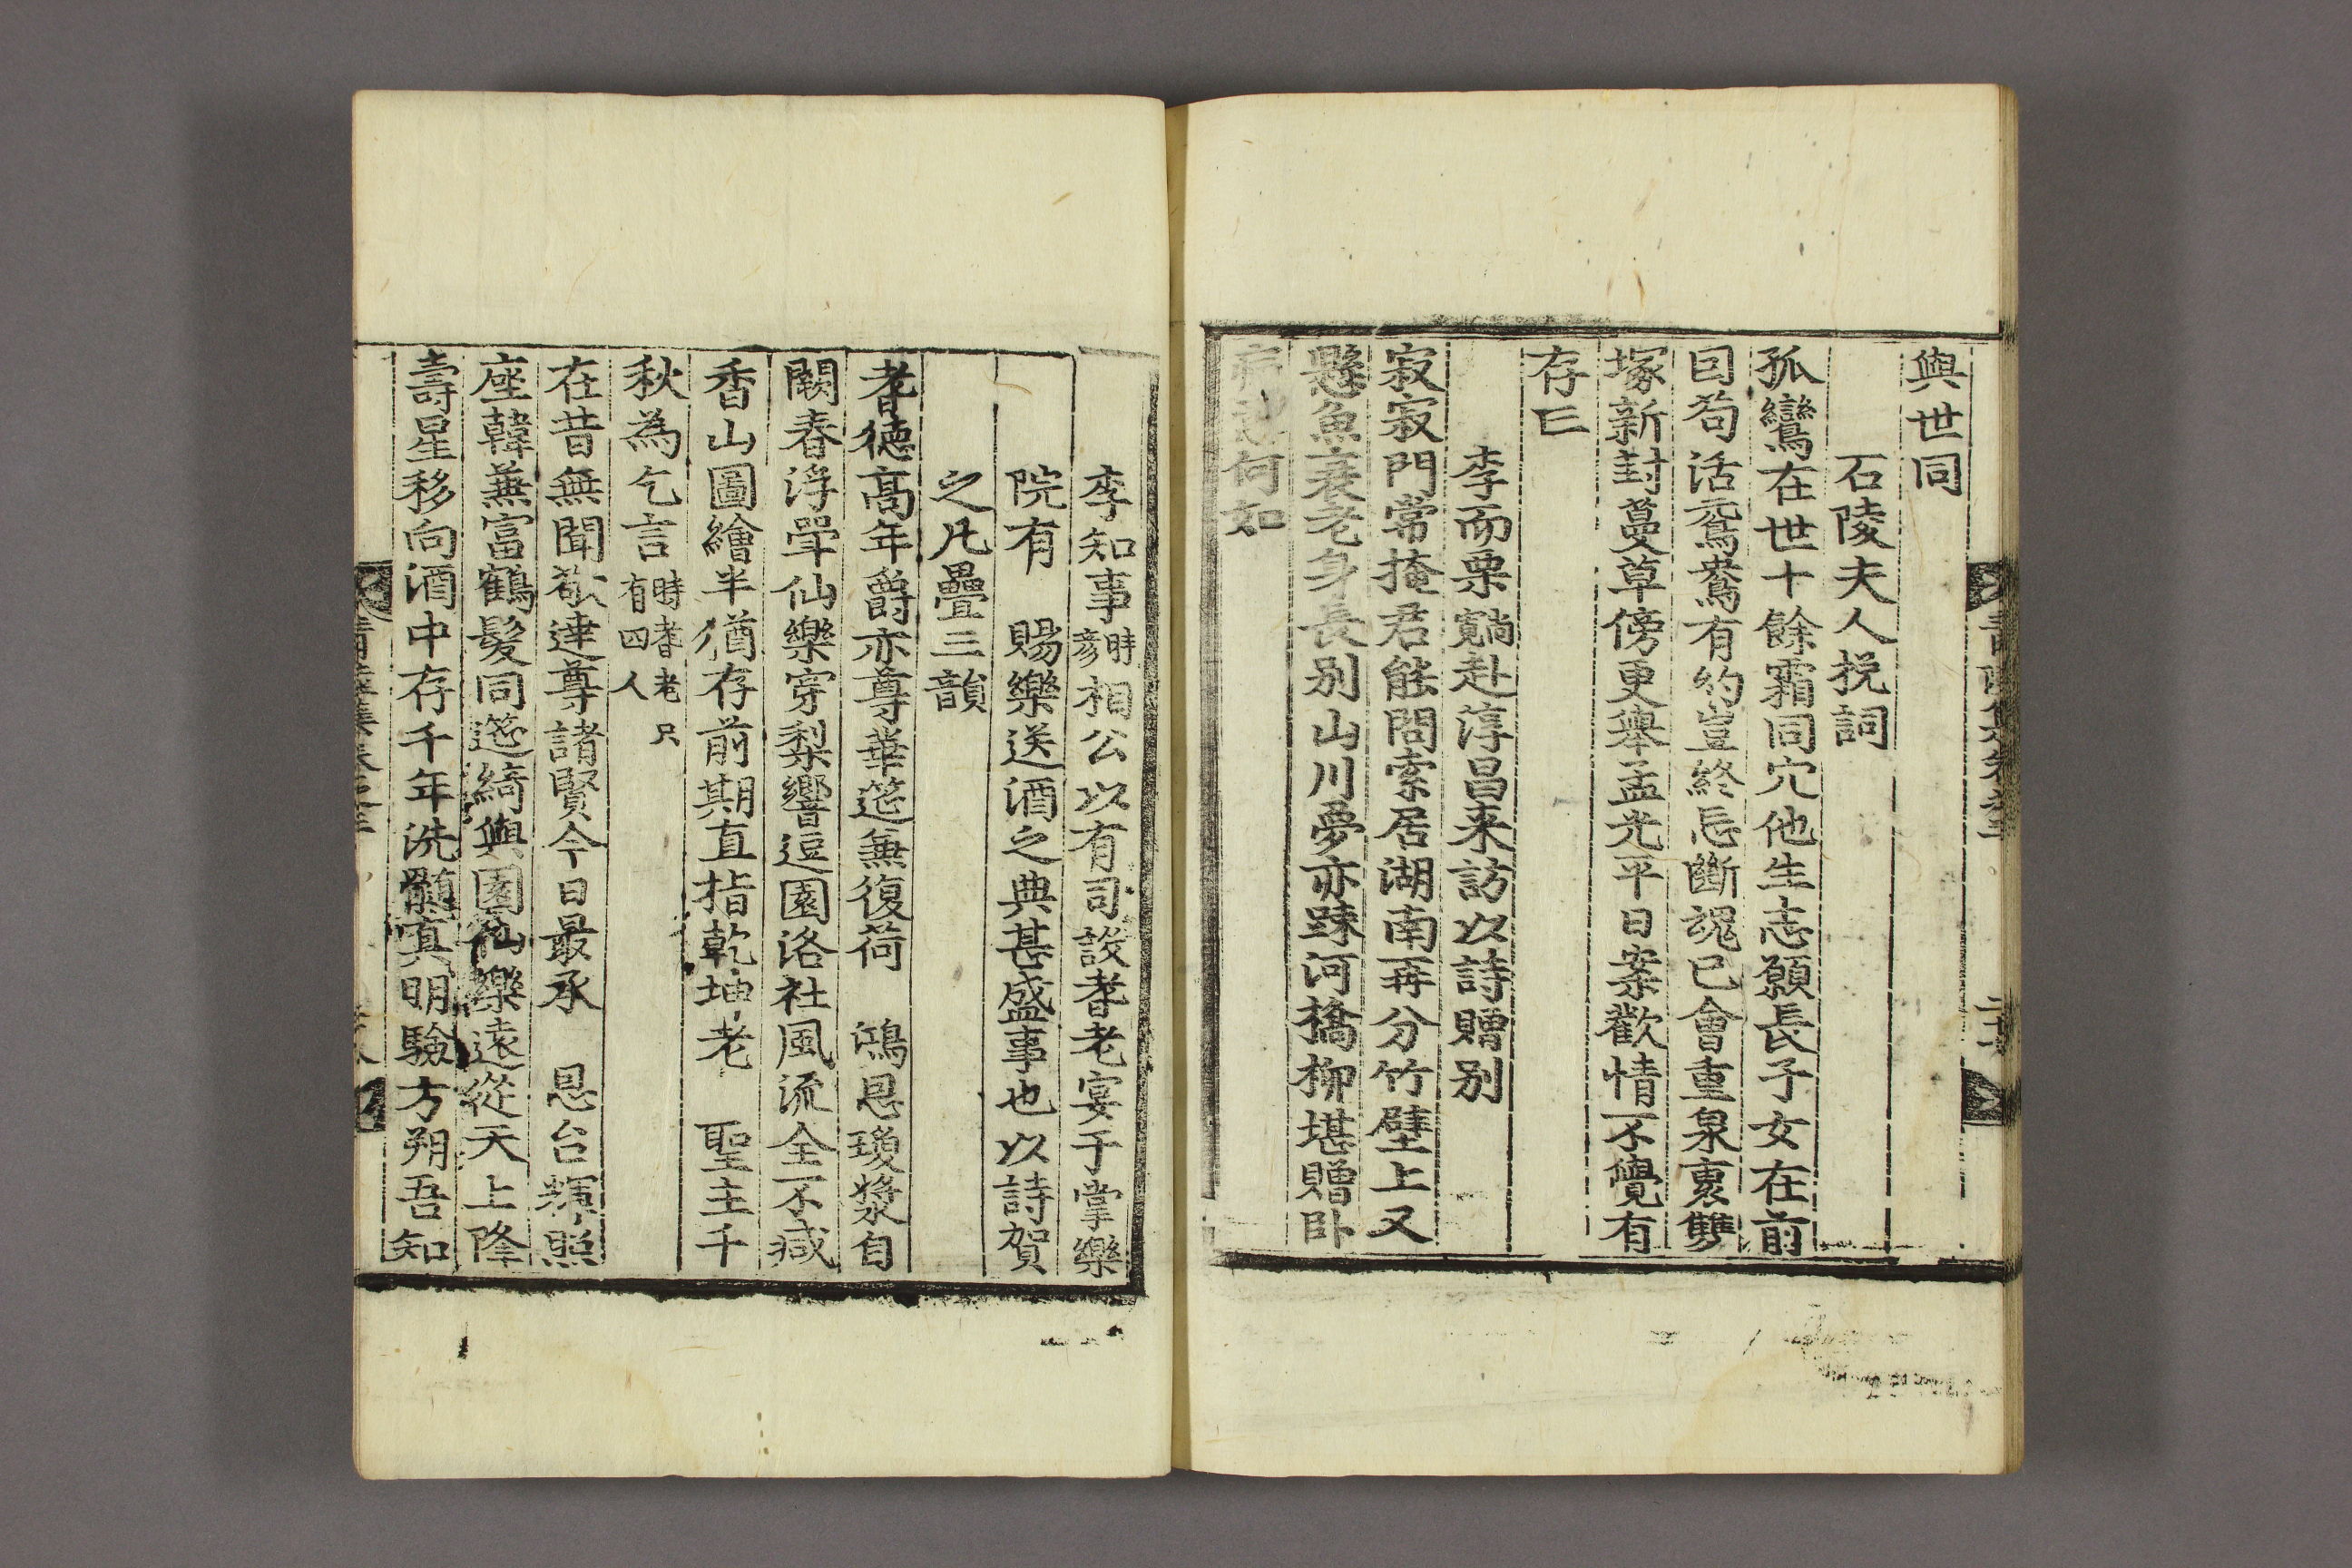 與世同
石陵夫人挽詞
孤鸞在世十餘霜同穴他生志願長子女在前
囙苟活鴛鴦有約豈終忘斷魂已會重泉裏雙
塚新封蔓草傍更擧孟光平日案歡情不覺有
存亡
李而栗寬赴淳昌来訪以詩贈别
寂寂門常掩君能問索居湖南再分竹壁上又
懸魚衰老身長别山川夢亦踈河橋柳堪贈卧
病何如
李知事時彦相公以有司設耆老宴于掌樂
院有 賜樂送酒之典甚盛事也以詩賀
之凡疊三韻
耆德高年爵亦尊華筵無復荷 鴻恩瓊漿自
闕春浮斝仙樂穿梨響逗園洛社風流全不减
香山圖繪半猶存前期直指乾坤老 聖主千
秋為乞言時耆老只有四人
在昔無聞欲達尊諸賢今日最承 恩台輝照
座韓兼富鶴髮同筵綺與園仙樂遠從天上降
壽星移向酒中存千年洗髓真明驗方朔吾知